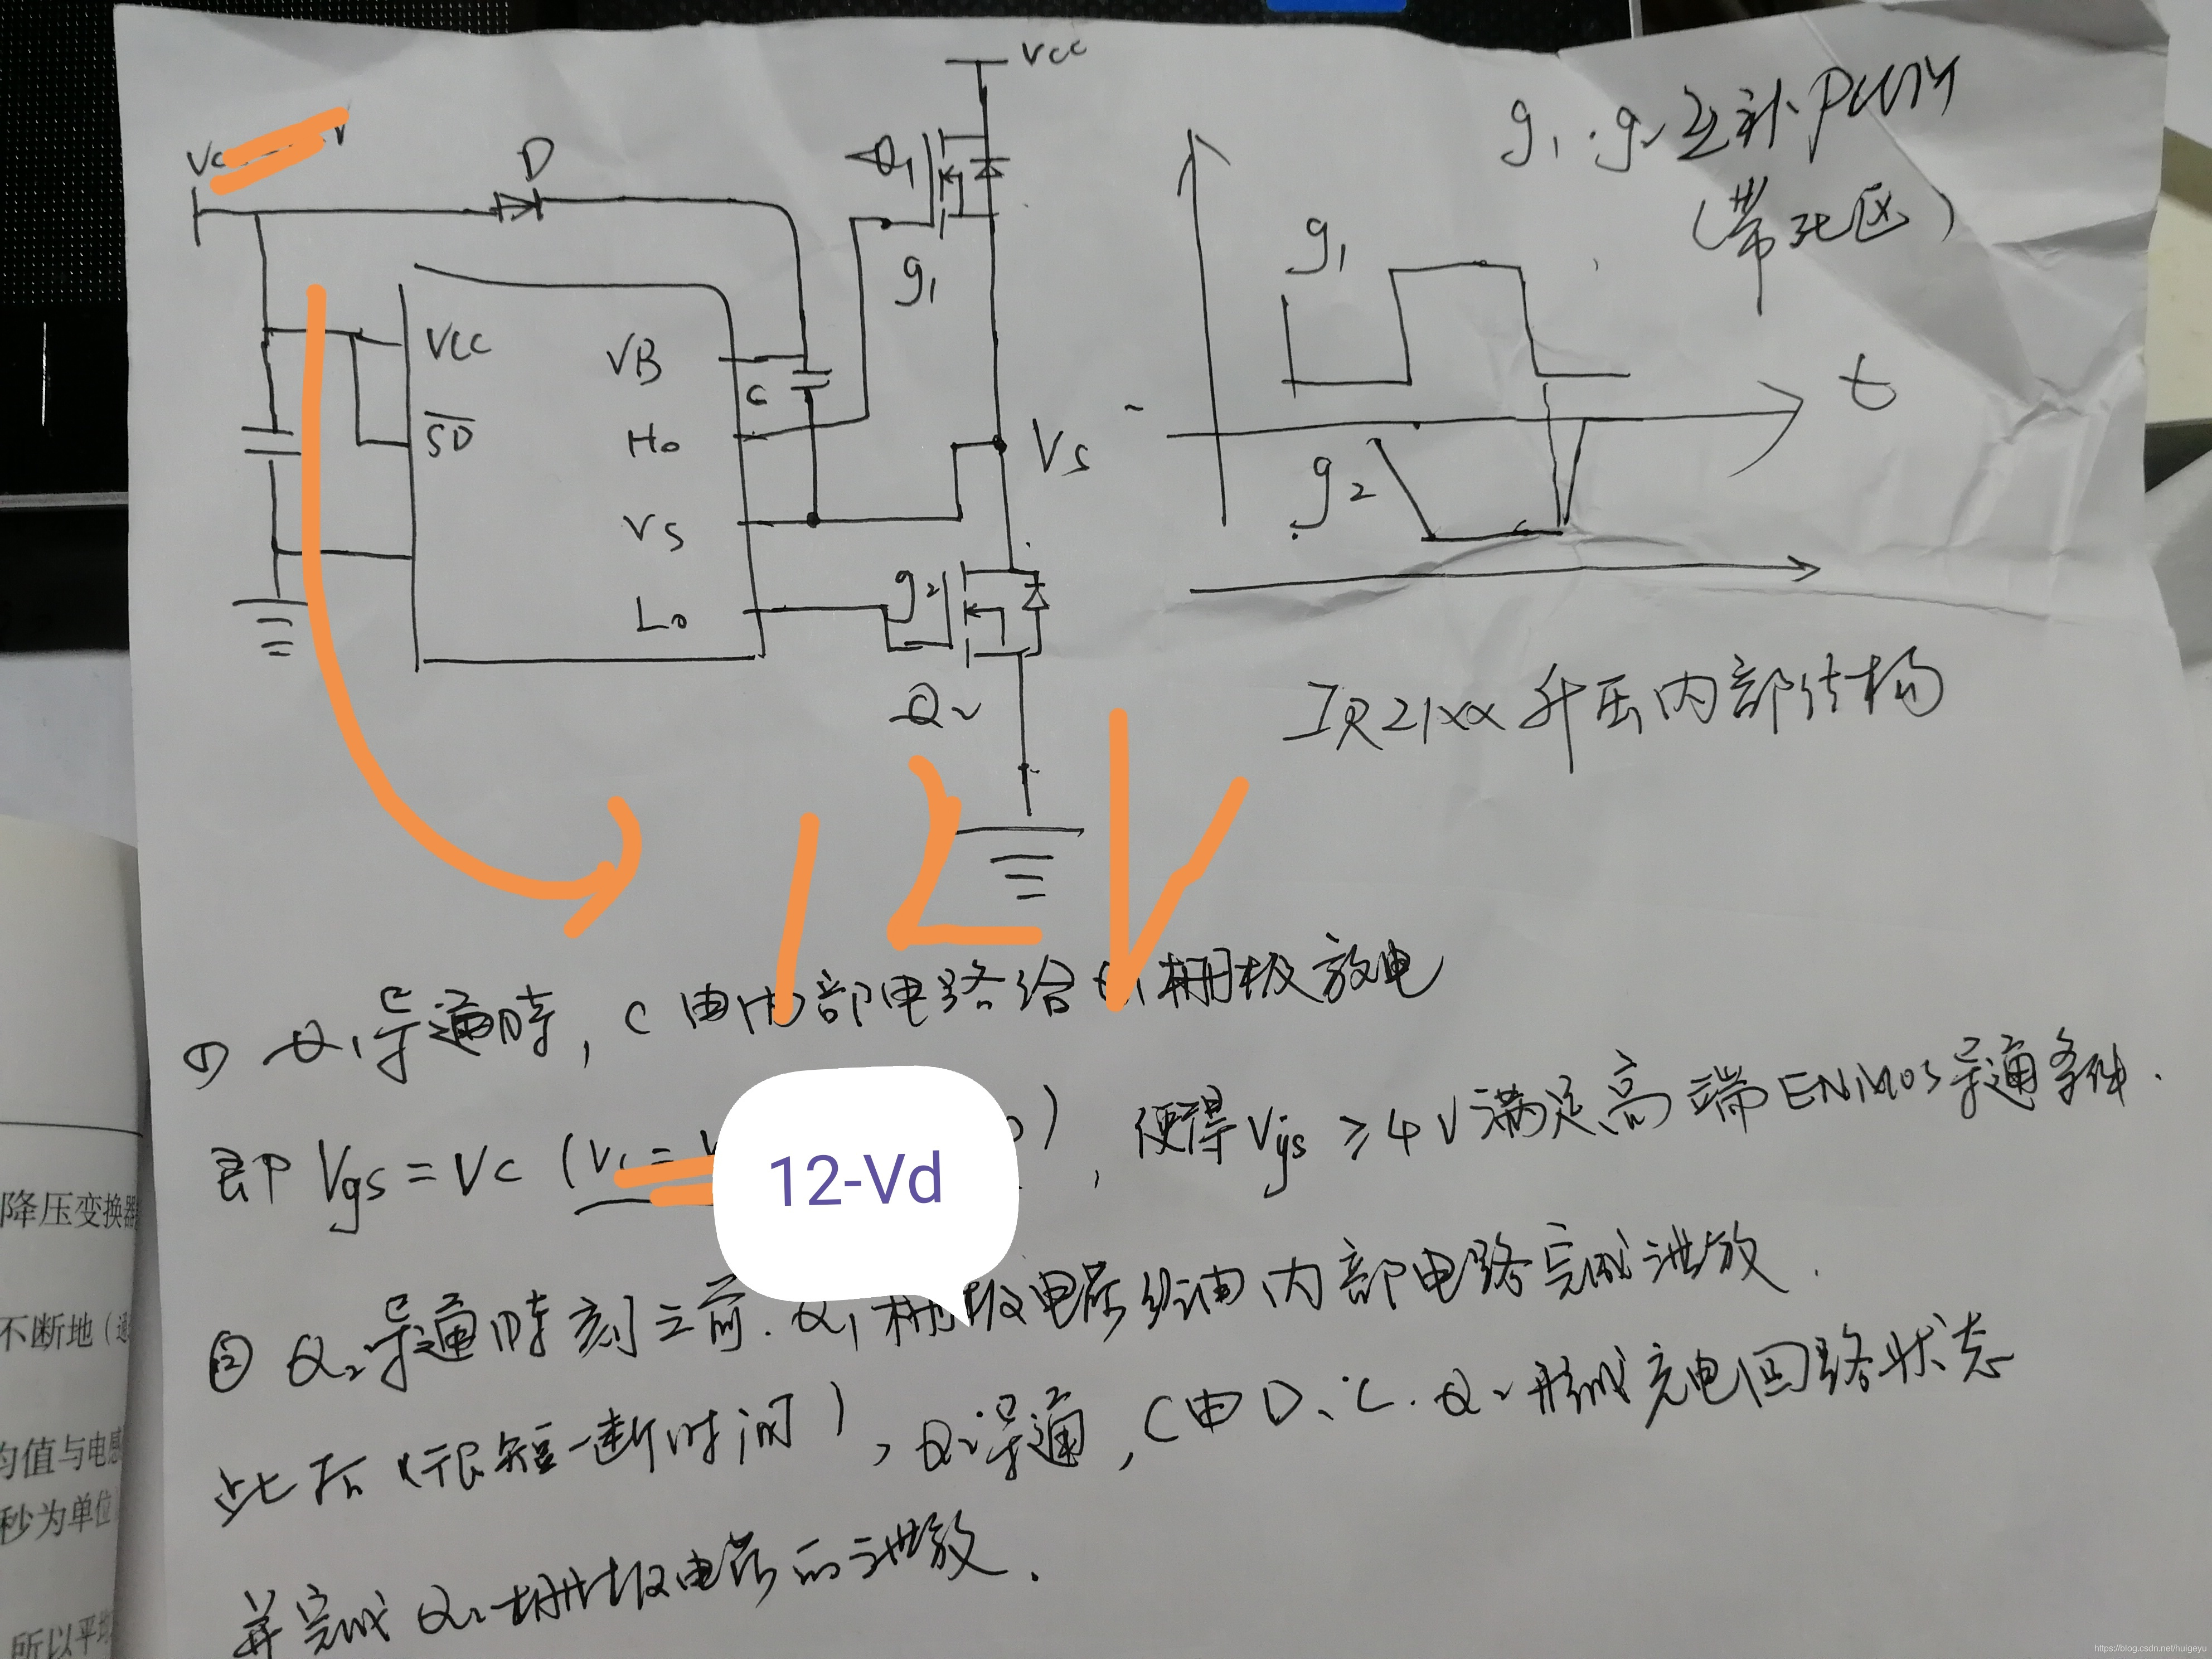 Vcc
D
Q1
g1
VCC
SD
VB
C
Ho
Vs
Vs
Lo
g2
Q2
g1、g2互补PWM
(带死区)
g1
t
g2
IR21xx升压内部结构
12V
① Q1导通时, C由内部电路给Q1栅极放电
即 Vgs = Vc (Vc = ), 使得Vgs ≥4V满足高端ENMOS导通条件.
12-Vd
② Q2导通时刻之前. Q1栅极电荷经由内部电路完成泄放.
此后(很短一断时间), Q2导通, C由D、C. Q2形成充电回路状态
并完成Q2栅极电荷的泄放.
降压变换器
不断地(通
均值与电感
秒为单位
所以平均
https://blog.csdn.net/huigeyu